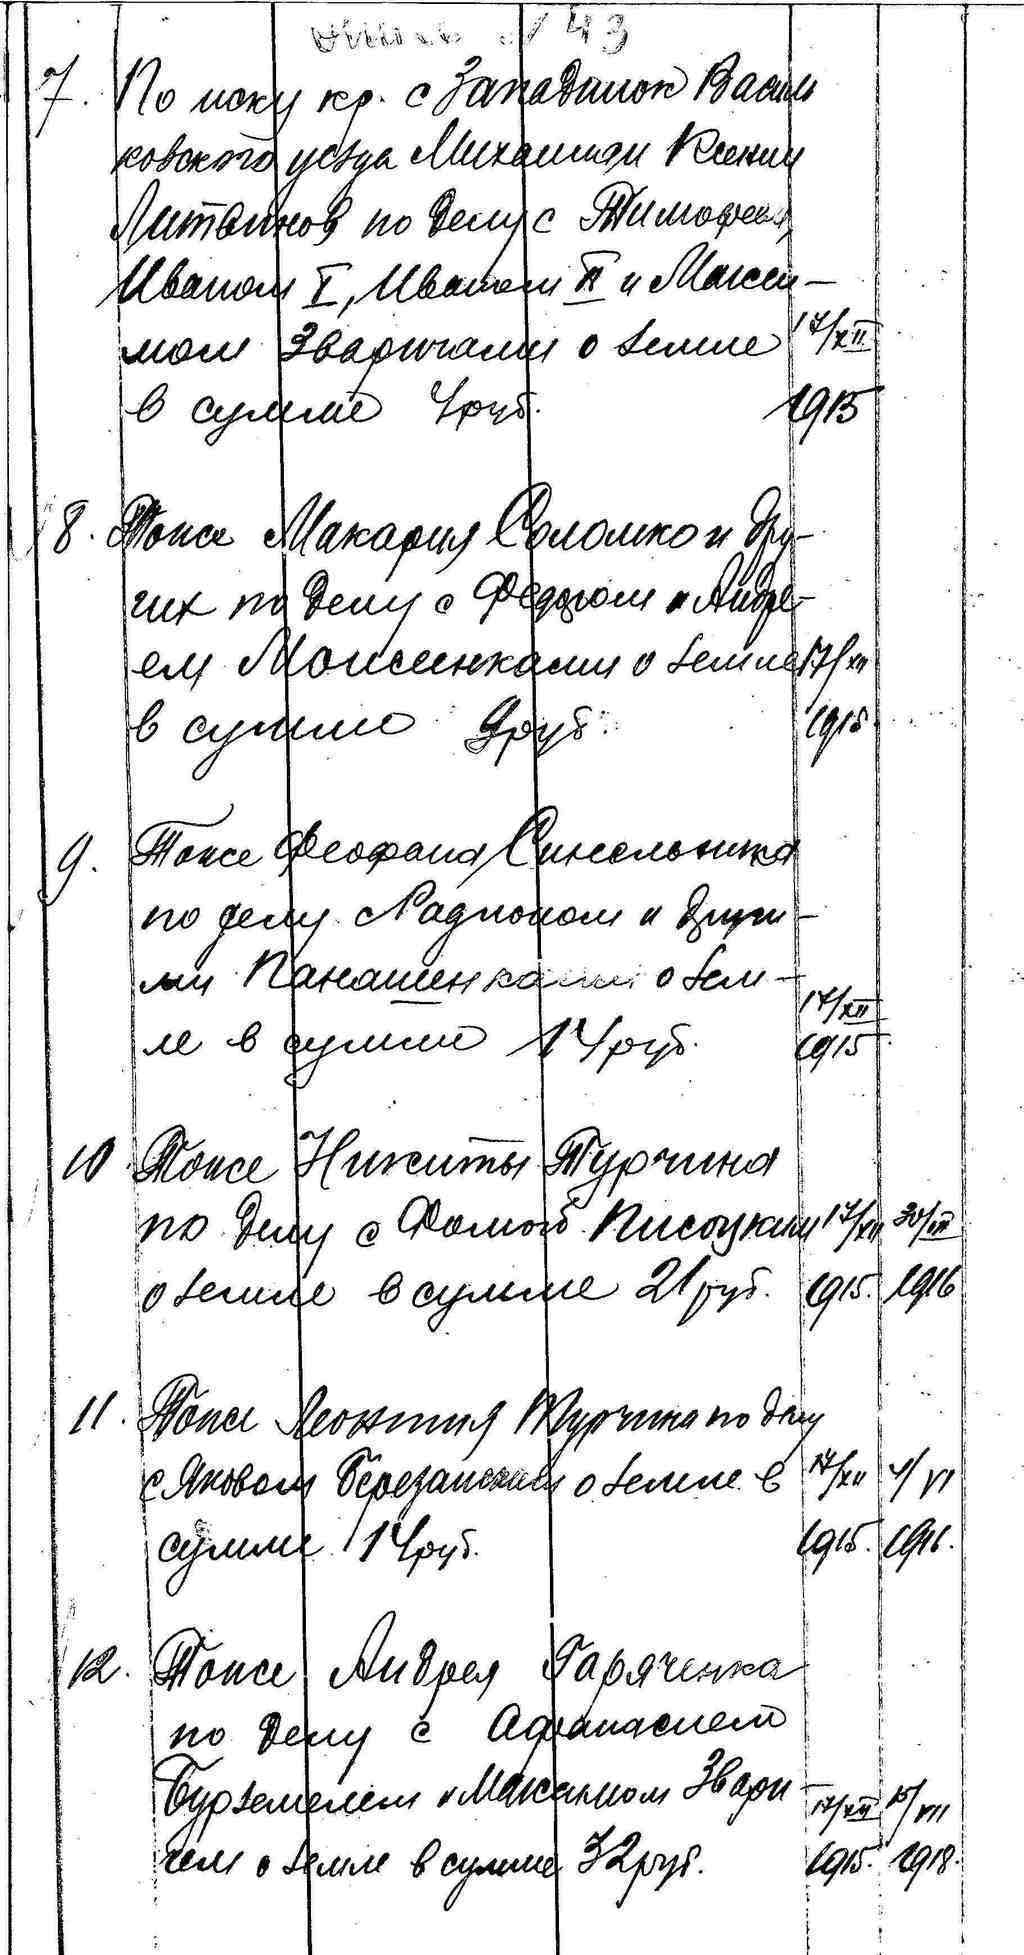 опись № 43
7. По иску кр. с Западинок Василь
ковского уезда Михаила и Ксении
Литвинов по делу с Тимофеем,
Иваном I, Иваном II и Макси-
мом Зваричами о земле 17/XII
в сумме 4 руб. 1915
8. Тоже Макария Соломко и дру-
гих по делу с Федором и Андре-
ем Моисеенками о земле 17/XII
в сумме 9 руб. 1915
9. Тоже Феофана Синельника
по делу с Радионом и други-
ми Панашенками о зем-
17/XII
ле в сумме 14 руб. 1915
10. Тоже Никиты Турчина
по делу с Фомой Писоцким 17/XII 30/III
о земле в сумме 21 руб. 1915. 1916
11. Тоже Леонтия Турчина по делу
с Яковом Березанским о земле в 17/XII 4/VI
сумме 14 руб. 1915. 1916.
12. Тоже Андрея Гаряченка
по делу с Афанасием
Бурземелем и Максимом Звари- 17/XII 15/VII
чем о земле в сумме 32 руб. 1915. 1918.